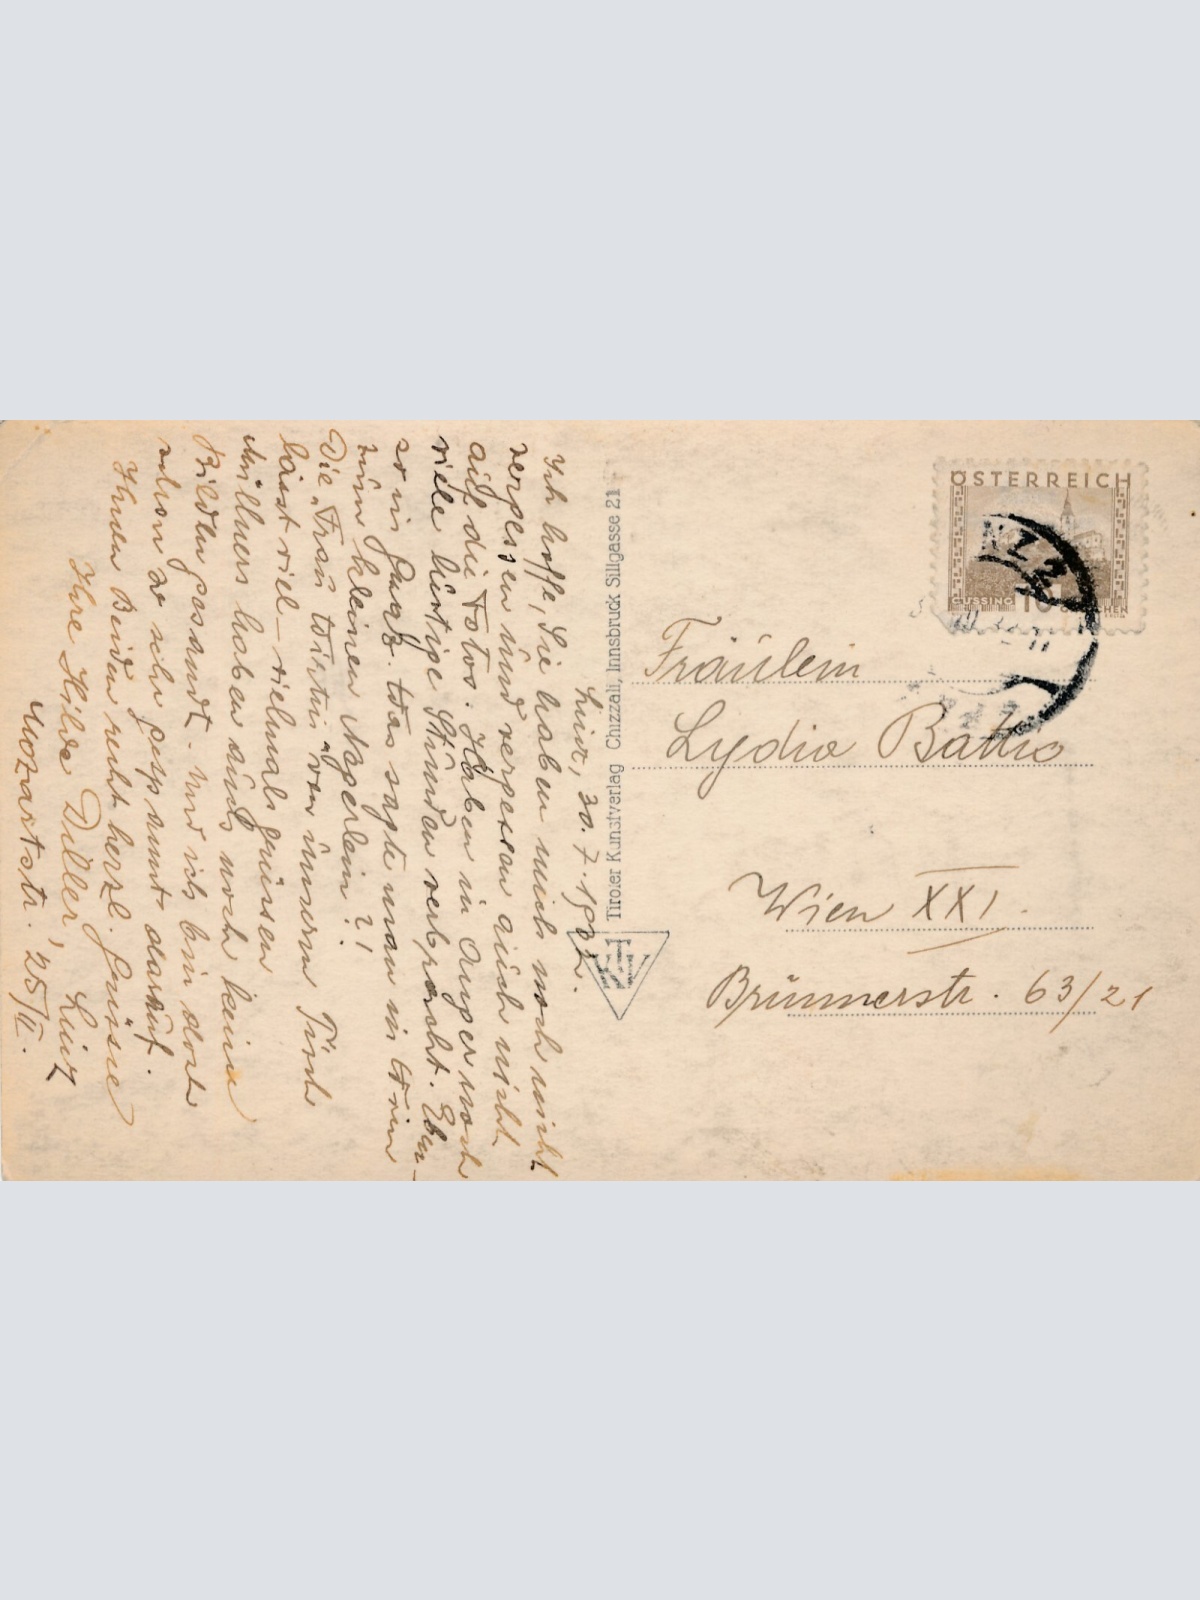 Linz, 30. 7. 1932.
Ich hoffe, Sie haben mich noch nicht
vergessen und vergessen auch nicht
auf die Fotos. Haben in Anger noch
viele lustige Stunden verbracht. Eben-
so in Graz. Was sagte man in Wien
zum kleinen Negerlein?!
Die „Frau Wirtin" von unserm Tisch
lässt viel – vielmals grüssen
Müllners haben auch noch keine
Bilder gesandt. Und ich bin doch
schon so sehr gespannt darauf.
Ihnen Beiden recht herzl. Grüsse
Ihre Hilde Diller, Linz
Mozartstr. 25/II.
Tiroler Kunstverlag Chizzali, Innsbruck Sillgasse 21
TKV
ÖSTERREICH
GÜSSING 10 GROSCHEN
NZ 2
Fräulein
Lydia Battic
Wien XXI.
Brünnerstr. 63/21